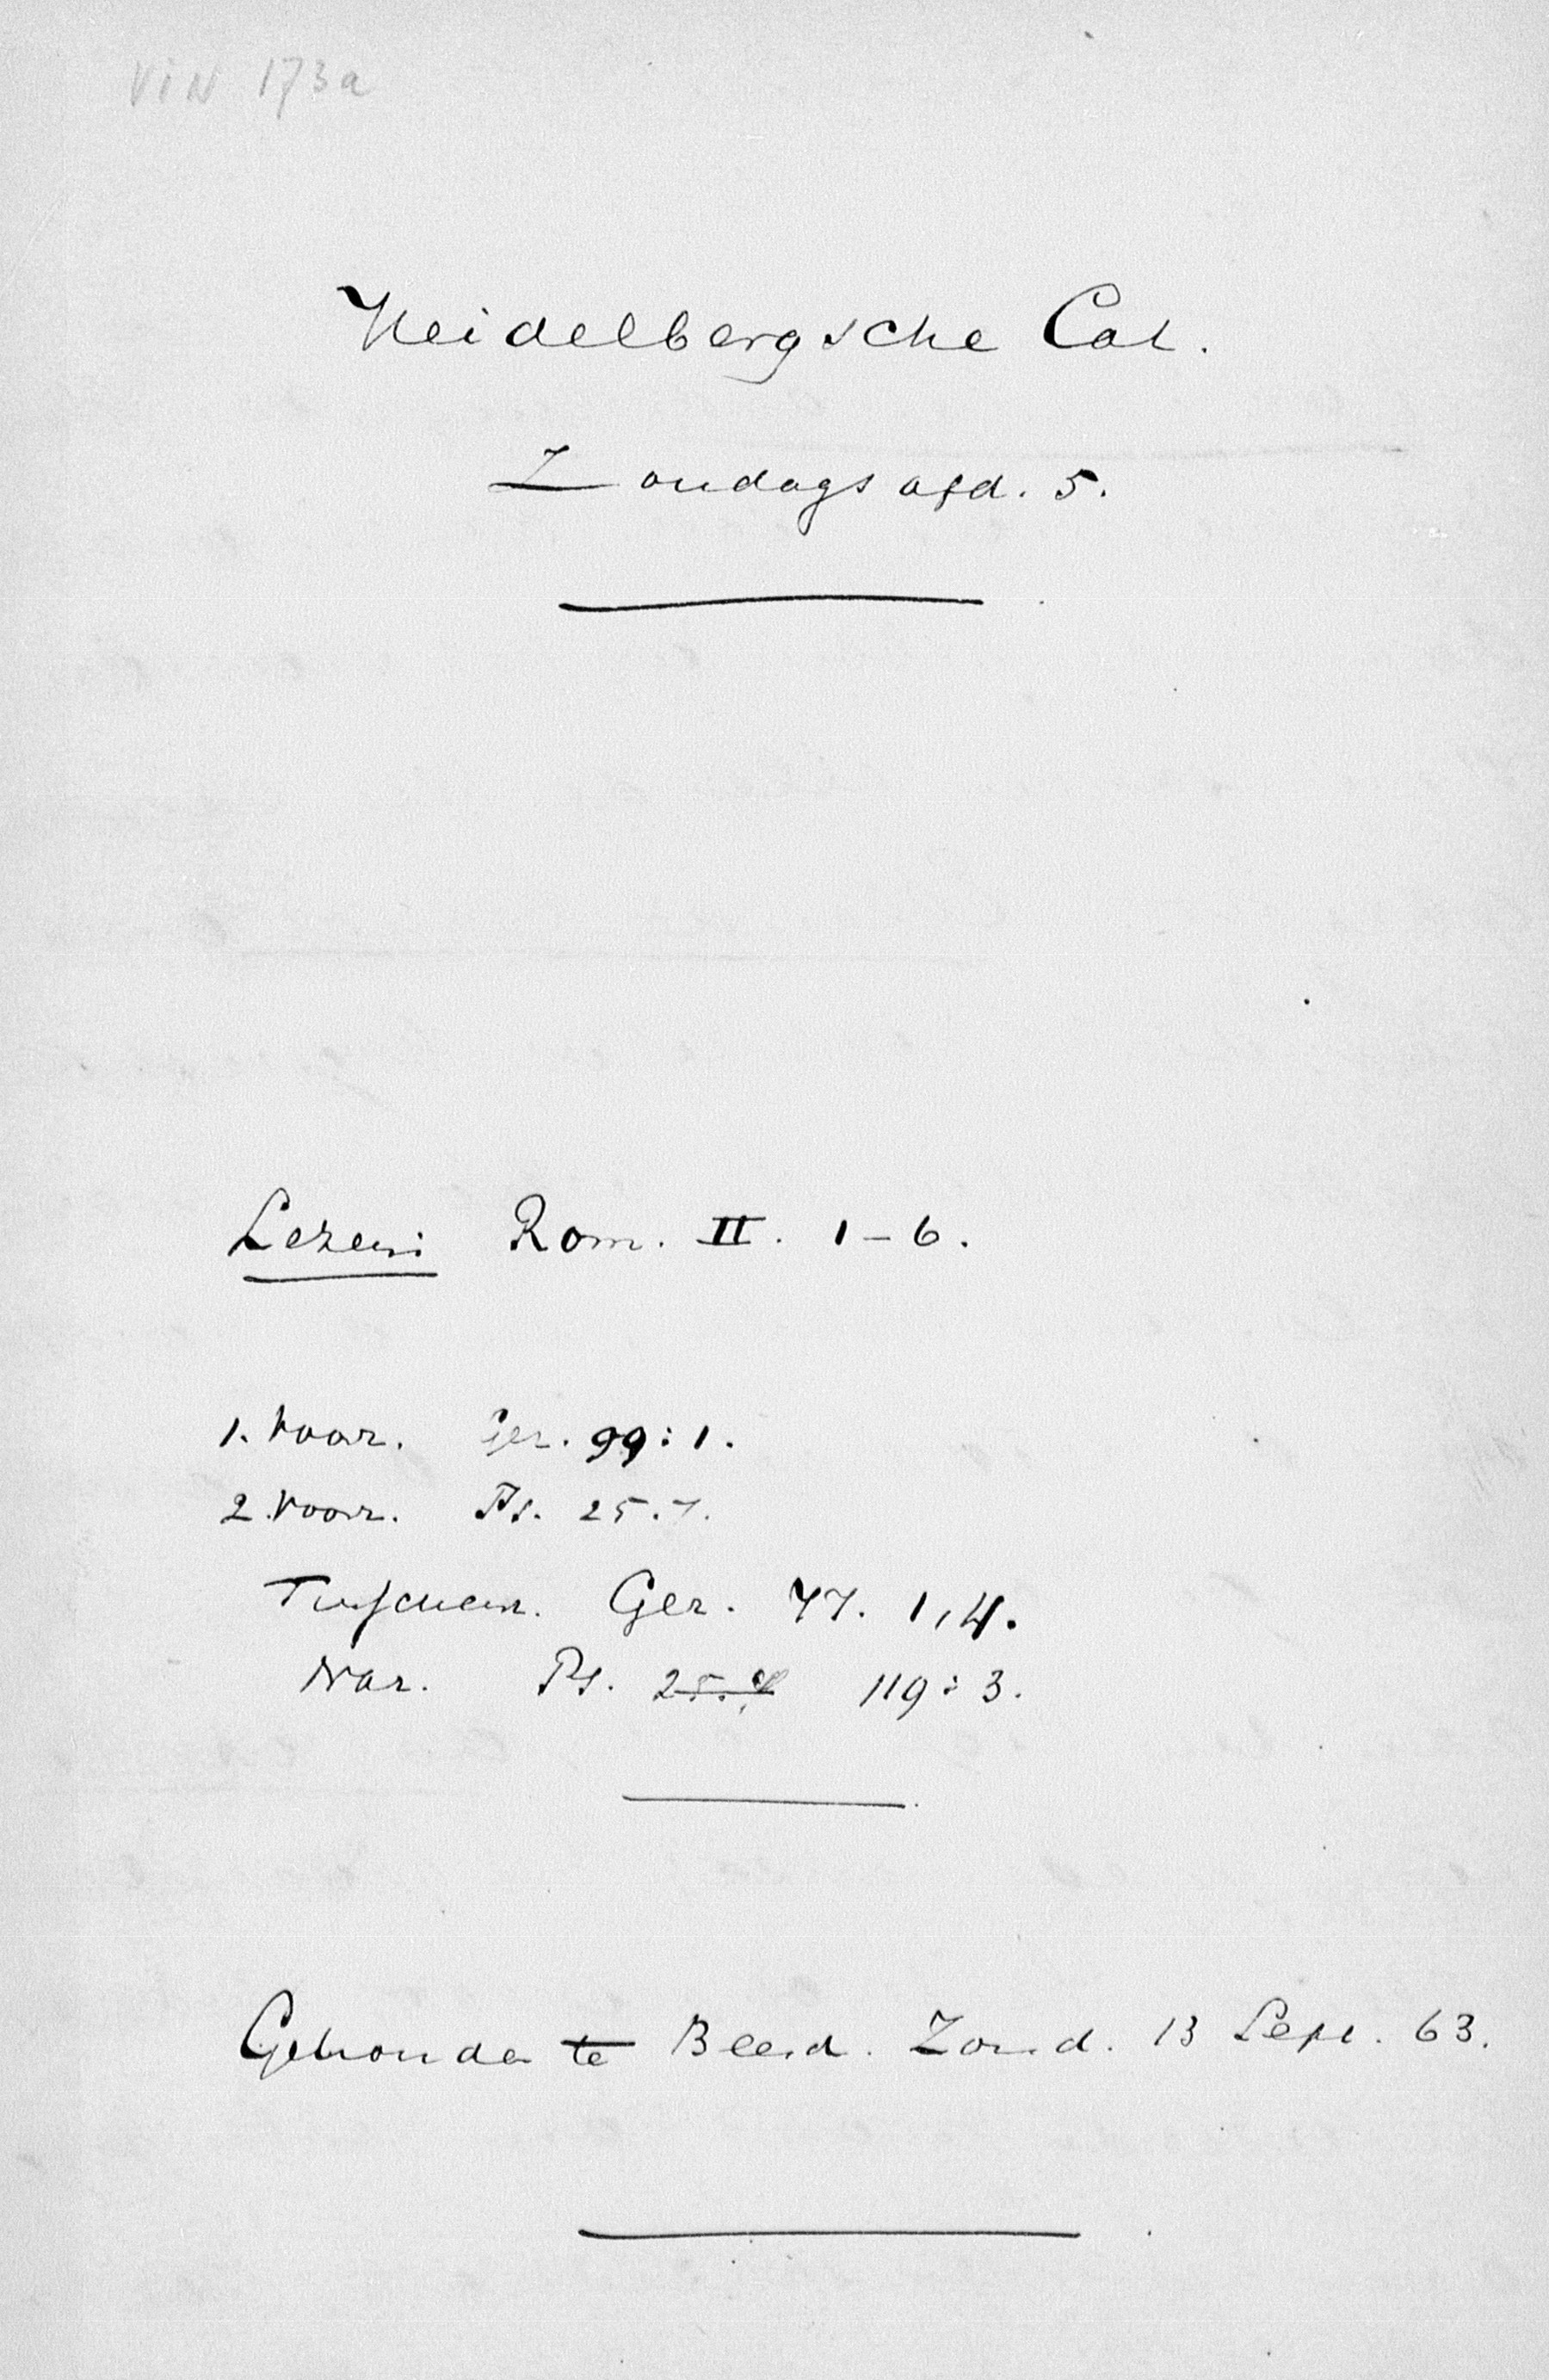 VIN 173a
Heidelbergsche Cat.
Zondagsafd. 5.
Lezen: Rom. II. 1-6.
1. Voor. Gez. 99:1.
2. Voor. Ps. 25.7.
Tusschen. Gez. 77. 1,4.
Na. Ps. 119:3.
Gehouden te Beesd. Zond. 13 Sept. 63.